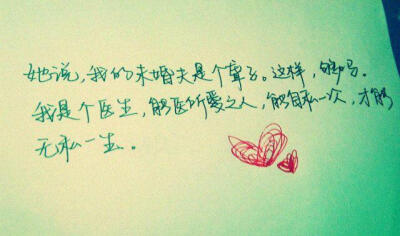 她说,我的未婚夫是个子。这样,够吗.
我是个医生,能医所爱之人,能自私一次,才能
无私一生。